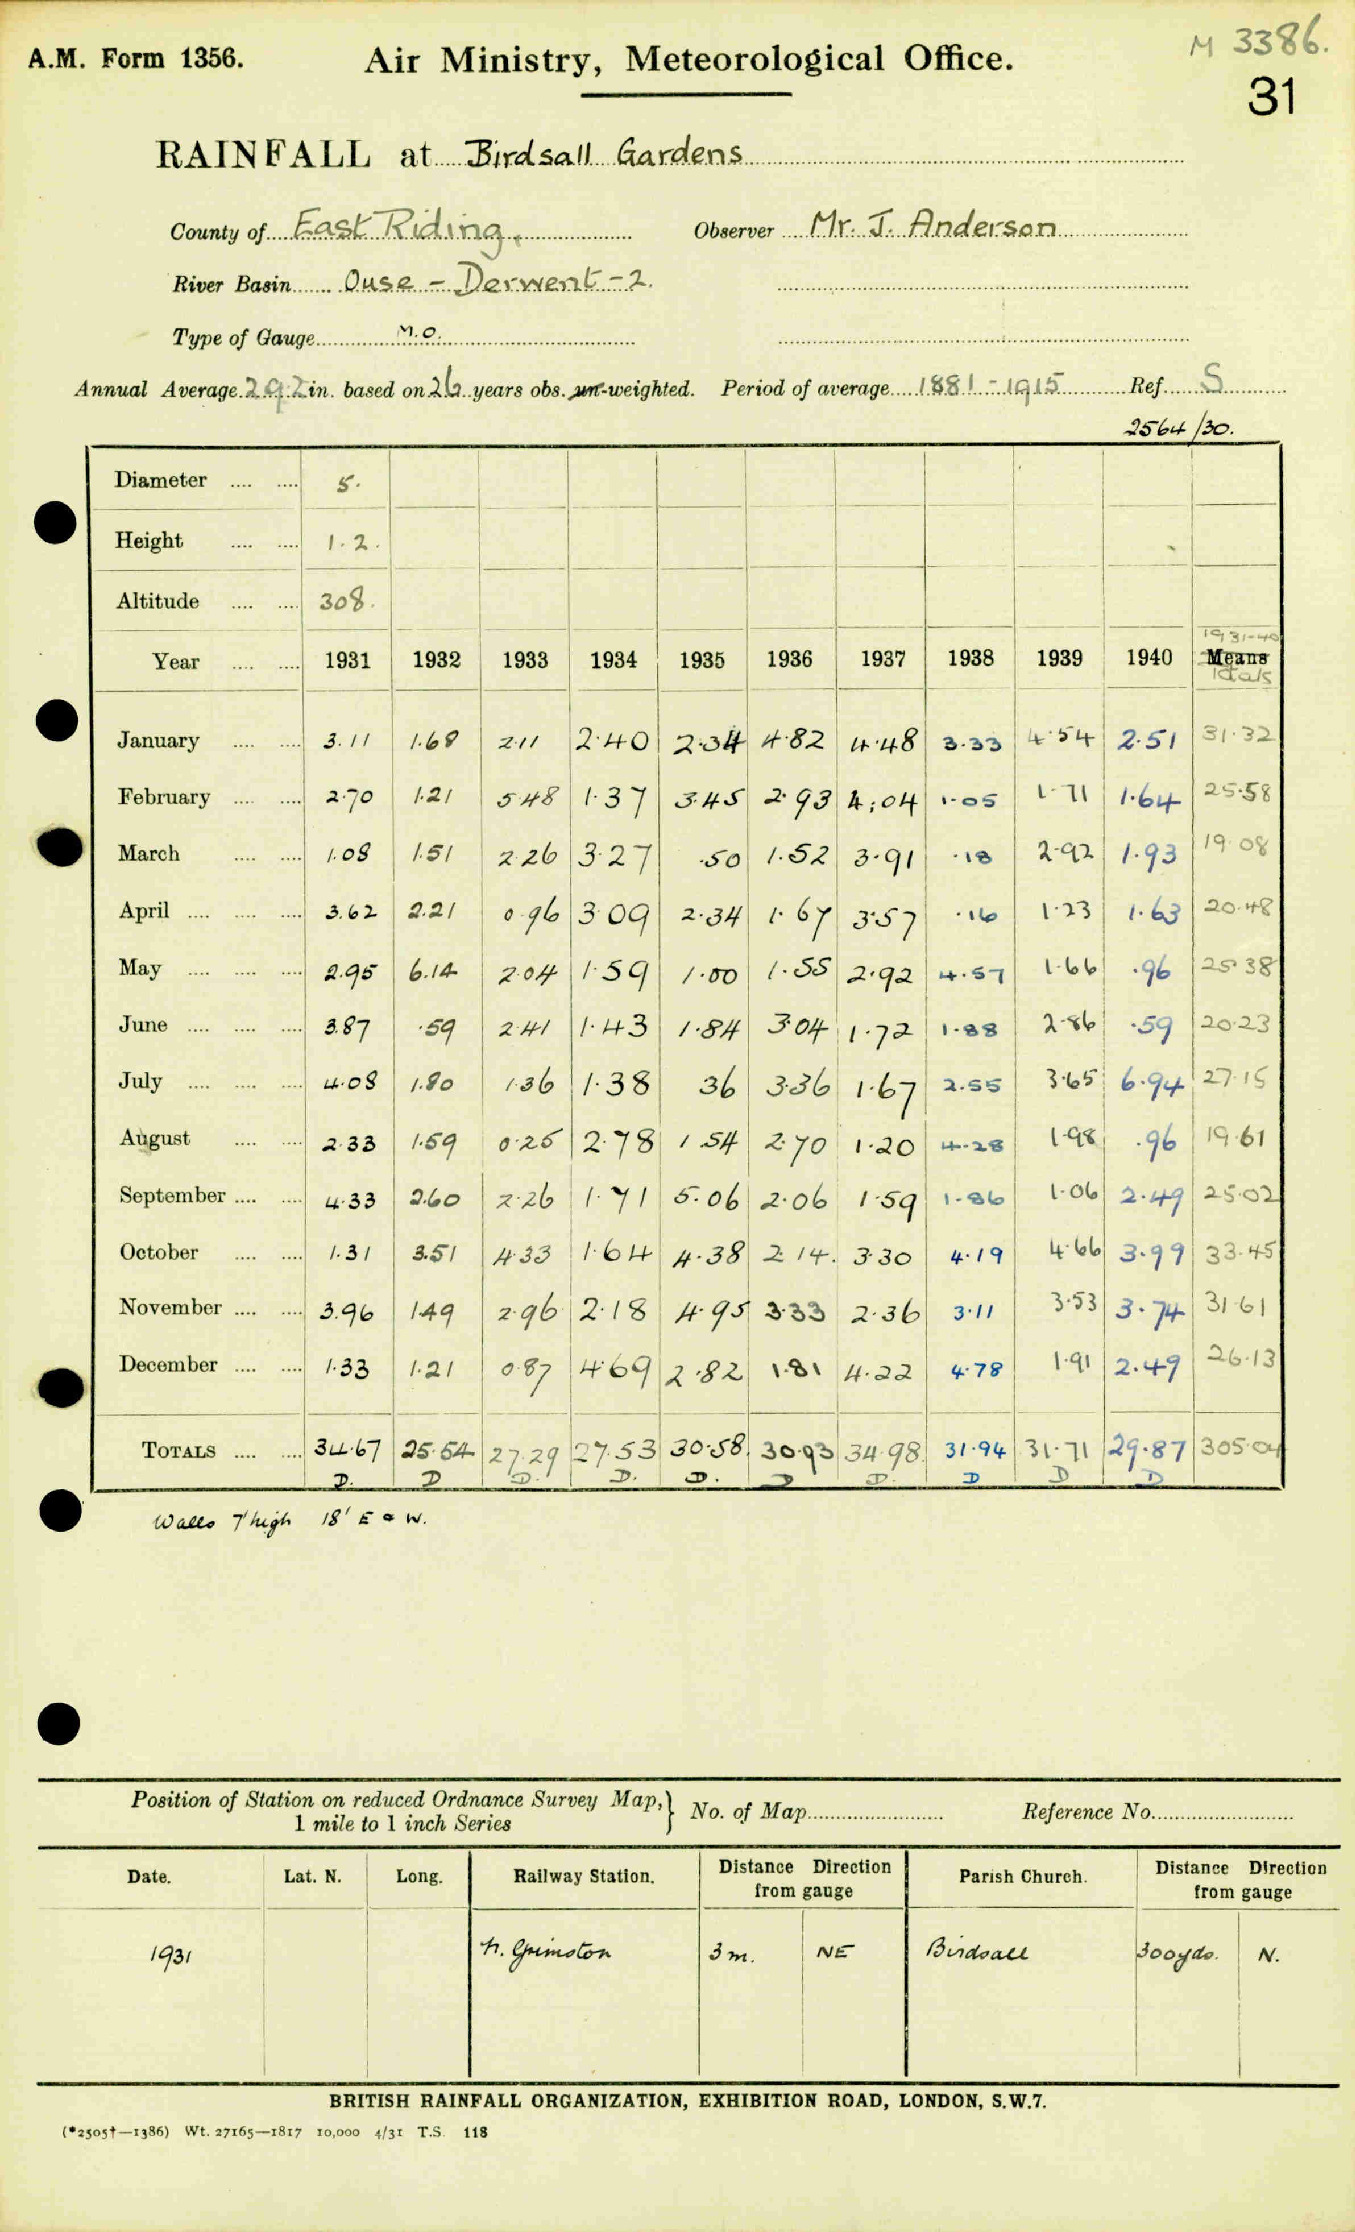 M 3386.
A.M. Form 1356. Air Ministry, Meteorological Office.
31
RAINFALL at Birdsall Gardens
County of East Riding, Observer Mr. J. Anderson
River Basin Ouse - Derwent - 2.
Type of Gauge M.O.
Annual Average 29.2 in. based on 26 years obs. un-weighted. Period of average 1881-1915 Ref. S
2564/30.
Diameter .... .... 5.
Height .... .... 1.2.
Altitude .... .... 308.
1931-40
Year .... .... 1931 1932 1933 1934 1935 1936 1937 1938 1939 1940 Means
Totals
January .... .... 3.11 1.68 2.11 2.40 2.34 4.82 4.48 3.33 4.54 2.51 31.32
February .... .... 2.70 1.21 5.48 1.37 3.45 2.93 4.04 1.05 1.71 1.64 25.58
March .... .... 1.08 1.51 2.26 3.27 .50 1.52 3.91 .18 2.92 1.93 19.08
April .... .... .... 3.62 2.21 0.96 3.09 2.34 1.67 3.57 .16 1.23 1.63 20.48
May .... .... .... 2.95 6.14 2.04 1.59 1.00 1.55 2.92 4.57 1.66 .96 25.38
June .... .... .... 3.87 .59 2.41 1.43 1.84 3.04 1.72 1.88 2.86 .59 20.23
July .... .... .... 4.08 1.80 1.36 1.38 36 3.36 1.67 2.55 3.65 6.94 27.15
August .... .... 2.33 1.59 0.25 2.78 1.54 2.70 1.20 4.28 1.98 .96 19.61
September .... .... 4.33 2.60 2.26 1.71 5.06 2.06 1.59 1.86 1.06 2.49 25.02
October .... .... 1.31 3.51 4.33 1.64 4.38 2.14. 3.30 4.19 4.66 3.99 33.45
November .... .... 3.96 1.49 2.96 2.18 4.95 3.33 2.36 3.11 3.53 3.74 31.61
December .... .... 1.33 1.21 0.87 4.69 2.82 1.81 4.22 4.78 1.91 2.49 26.13
TOTALS .... .... 34.67 25.54 27.29 27.53 30.58. 30.93 34.98 31.94 31.71 29.87 305.04
D. D D. D. D. D D. D D D
Walls 7' high 18' E & W.
Position of Station on reduced Ordnance Survey Map,} No. of Map Reference No.
1 mile to 1 inch Series
Date. Lat. N. Long. Railway Station. Distance Direction from gauge Parish Church. Distance Direction from gauge
1931 N. Grimston 3 m. NE Birdsall 300 yds. N.
BRITISH RAINFALL ORGANIZATION, EXHIBITION ROAD, LONDON, S.W.7.
(*2505†—1386) Wt. 27165—1817 10,000 4/31 T.S. 118